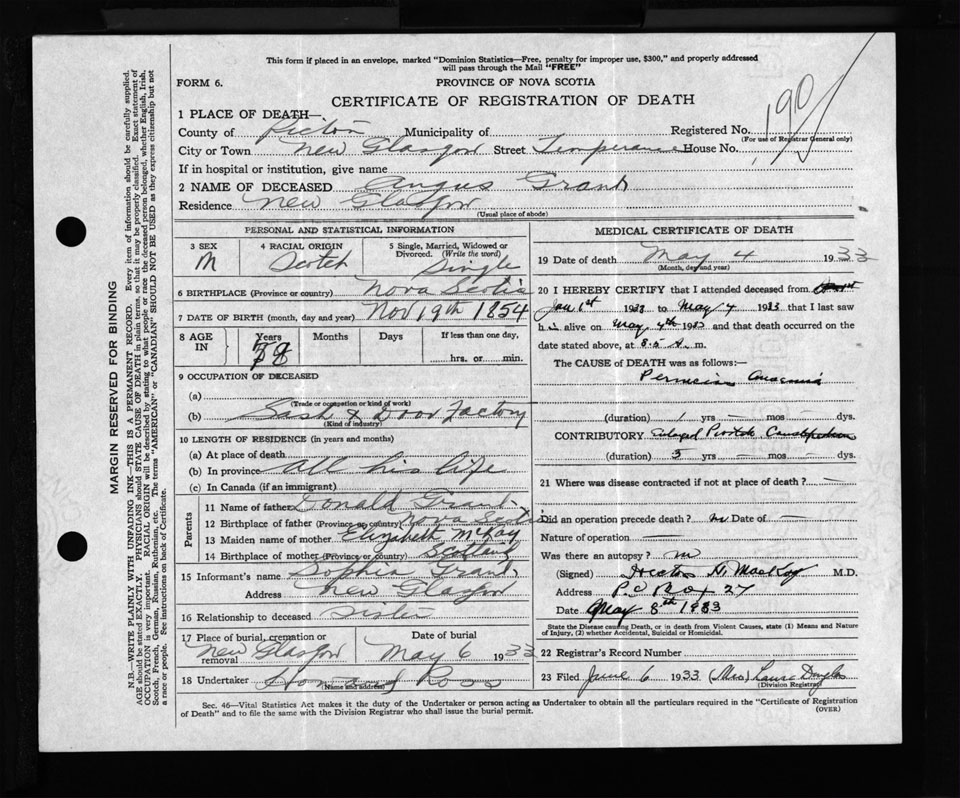 This form if placed in an envelope, marked "Dominion Statistics—Free, penalty for improper use, $300," and properly addressed
will pass through the Mail "FREE"
FORM 6. PROVINCE OF NOVA SCOTIA
CERTIFICATE OF REGISTRATION OF DEATH
1 PLACE OF DEATH—
County of Pictou Municipality of Registered No. 190
(For use of Registrar General only)
City or Town New Glasgow Street House No.
If in hospital or institution, give name
2 NAME OF DECEASED Angus Grant
Residence New Glasgow
(Usual place of abode)
PERSONAL AND STATISTICAL INFORMATION
3 SEX 4 RACIAL ORIGIN 5 Single, Married, Widowed or
Divorced. (Write the word)
M Scotch Single
6 BIRTHPLACE (Province or country) Nova Scotia
7 DATE OF BIRTH (month, day and year) Nov 19th 1854
8 AGE IN Years Months Days If less than one day,
78 hrs. or min.
9 OCCUPATION OF DECEASED
(a)
(Trade or occupation or kind of work)
(b) Sash & Door Factory
(Kind of industry)
10 LENGTH OF RESIDENCE (in years and months)
(a) At place of death
(b) In province all his life
(c) In Canada (if an immigrant)
Parents
11 Name of father Donald Grant
12 Birthplace of father (Province or country) Nova Scotia
13 Maiden name of mother Elizabeth McKay
14 Birthplace of mother (Province or country) Scotland
15 Informant's name Sophia Grant
Address New Glasgow
16 Relationship to deceased Sister
17 Place of burial, cremation or removal Date of burial
New Glasgow May 6 1933
18 Undertaker Howard Ross
(Name and address)
MEDICAL CERTIFICATE OF DEATH
19 Date of death May 4 1933
(Month, day and year)
20 I HEREBY CERTIFY that I attended deceased from
Jan 1st 1933 to May 4 1933 that I last saw
h im alive on May 4th 1933 and that death occurred on the
date stated above, at m.
The CAUSE OF DEATH was as follows:—
Pernicious Anaemia
(duration) 1 yrs — mos — dys.
CONTRIBUTORY
(duration) 5 yrs — mos — dys.
21 Where was disease contracted if not at place of death? —
Did an operation precede death? no Date of —
Nature of operation —
Was there an autopsy? no
(Signed) H. MacKay M.D.
Address P.O Box 27
Date May 8th 1933
State the Disease causing Death, or in death from Violent Causes, state (1) Means and Nature
of Injury, (2) whether Accidental, Suicidal or Homicidal.
22 Registrar's Record Number
23 Filed June 6 1933 (Mrs) Laura Douglas
(Division Registrar)
Sec. 46—Vital Statistics Act makes it the duty of the Undertaker or person acting as Undertaker to obtain all the particulars required in the "Certificate of Registration
of Death" and to file the same with the Division Registrar who shall issue the burial permit. (OVER)
MARGIN RESERVED FOR BINDING
N.B.—WRITE PLAINLY WITH UNFADING INK—THIS IS A PERMANENT RECORD. Every item of information should be carefully supplied.
AGE should be stated EXACTLY. PHYSICIANS should STATE CAUSE OF DEATH in plain terms, so that it may be properly classified. Exact statement of
OCCUPATION is very important. RACIAL ORIGIN will be described by stating to what people or race the deceased person belonged, whether English, Irish,
Scotch, French, German, Russian, Ruthenian, etc. The terms "AMERICAN" or "CANADIAN" SHOULD NOT BE USED as they express citizenship but not
a race or people. See instructions on back of Certificate.